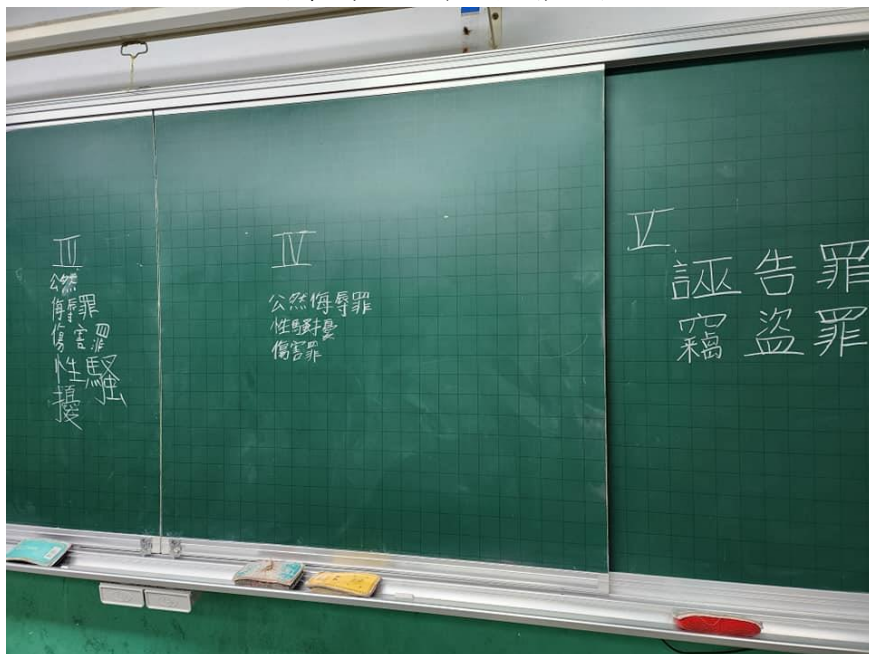 III
公然
侮辱罪
傷害罪
性騷
擾
IV
公然侮辱罪
性騷擾
傷害罪
V.
誣告罪
竊盜罪